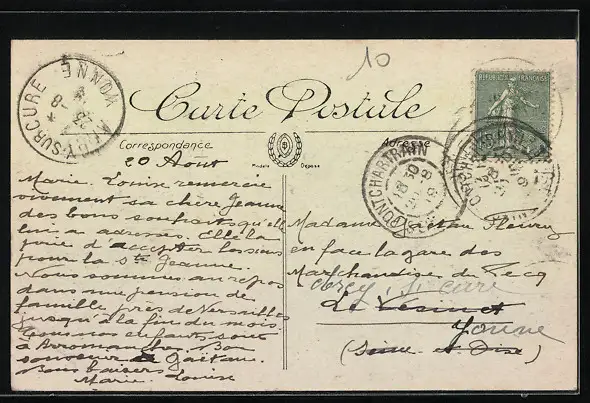 10
Carte Postale
Correspondance
Adresse
Modèle Déposé
REPUBLIQUE FRANÇAISE
YONNE
SURCURE
PONTCHARTRAIN
20 Août
Marie-Louise remercie
vivement sa chère Jeanne
des bons souhaits qu'elle
lui a adressés. Elle l'a
joie d'accepter les siens
pour la Ste Jeanne.
Nous sommes au repos
dans une pension de
famille près de Versailles
jusqu'à la fin du mois.
sont
à Arromanches. Bon
souvenir à Gaëtan.
Bons baisers
Marie Louise
Madame Gaëtan Fleury
en face la gare des
Marchandises du Pecq
Le Vésinet
Yonne
(Seine et Oise)